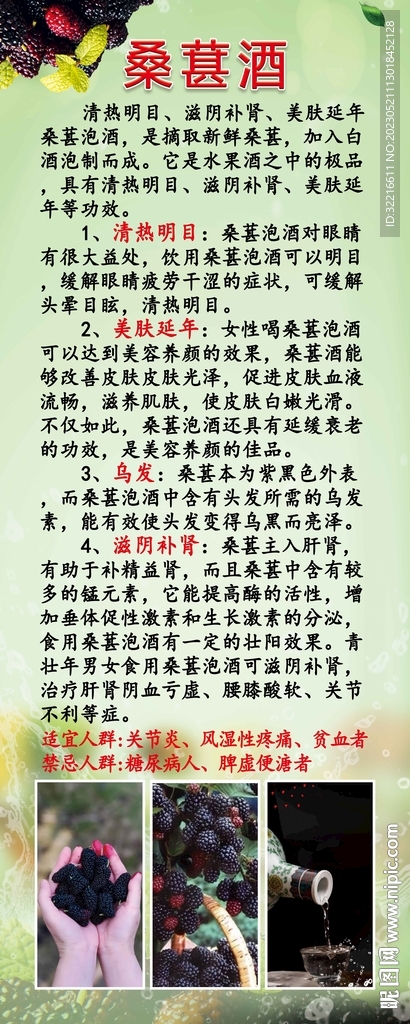 桑葚酒
清热明目、滋阴补肾、美肤延年
桑葚泡酒，是摘取新鲜桑葚，加入白
酒泡制而成。它是水果酒之中的极品
，具有清热明目、滋阴补肾、美肤延
年等功效。
1、清热明目：桑葚泡酒对眼睛
有很大益处，饮用桑葚泡酒可以明目
，缓解眼睛疲劳干涩的症状，可缓解
头晕目眩，清热明目。
2、美肤延年：女性喝桑葚泡酒
可以达到美容养颜的效果，桑葚酒能
够改善皮肤皮肤光泽，促进皮肤血液
流畅，滋养肌肤，使皮肤白嫩光滑。
不仅如此，桑葚泡酒还具有延缓衰老
的功效，是美容养颜的佳品。
3、乌发：桑葚本为紫黑色外表
，而桑葚泡酒中含有头发所需的乌发
素，能有效使头发变得乌黑而亮泽。
4、滋阴补肾：桑葚主入肝肾，
有助于补精益肾，而且桑葚中含有较
多的锰元素，它能提高酶的活性，增
加垂体促性激素和生长激素的分泌，
食用桑葚泡酒有一定的壮阳效果。青
壮年男女食用桑葚泡酒可滋阴补肾，
治疗肝肾阴血亏虚、腰膝酸软、关节
不利等症。
适宜人群:关节炎、风湿性疼痛、贫血者
禁忌人群:糖尿病人、脾虚便溏者
ID:32216611 NO:20230521113018452128
昵图网 www.nipic.com